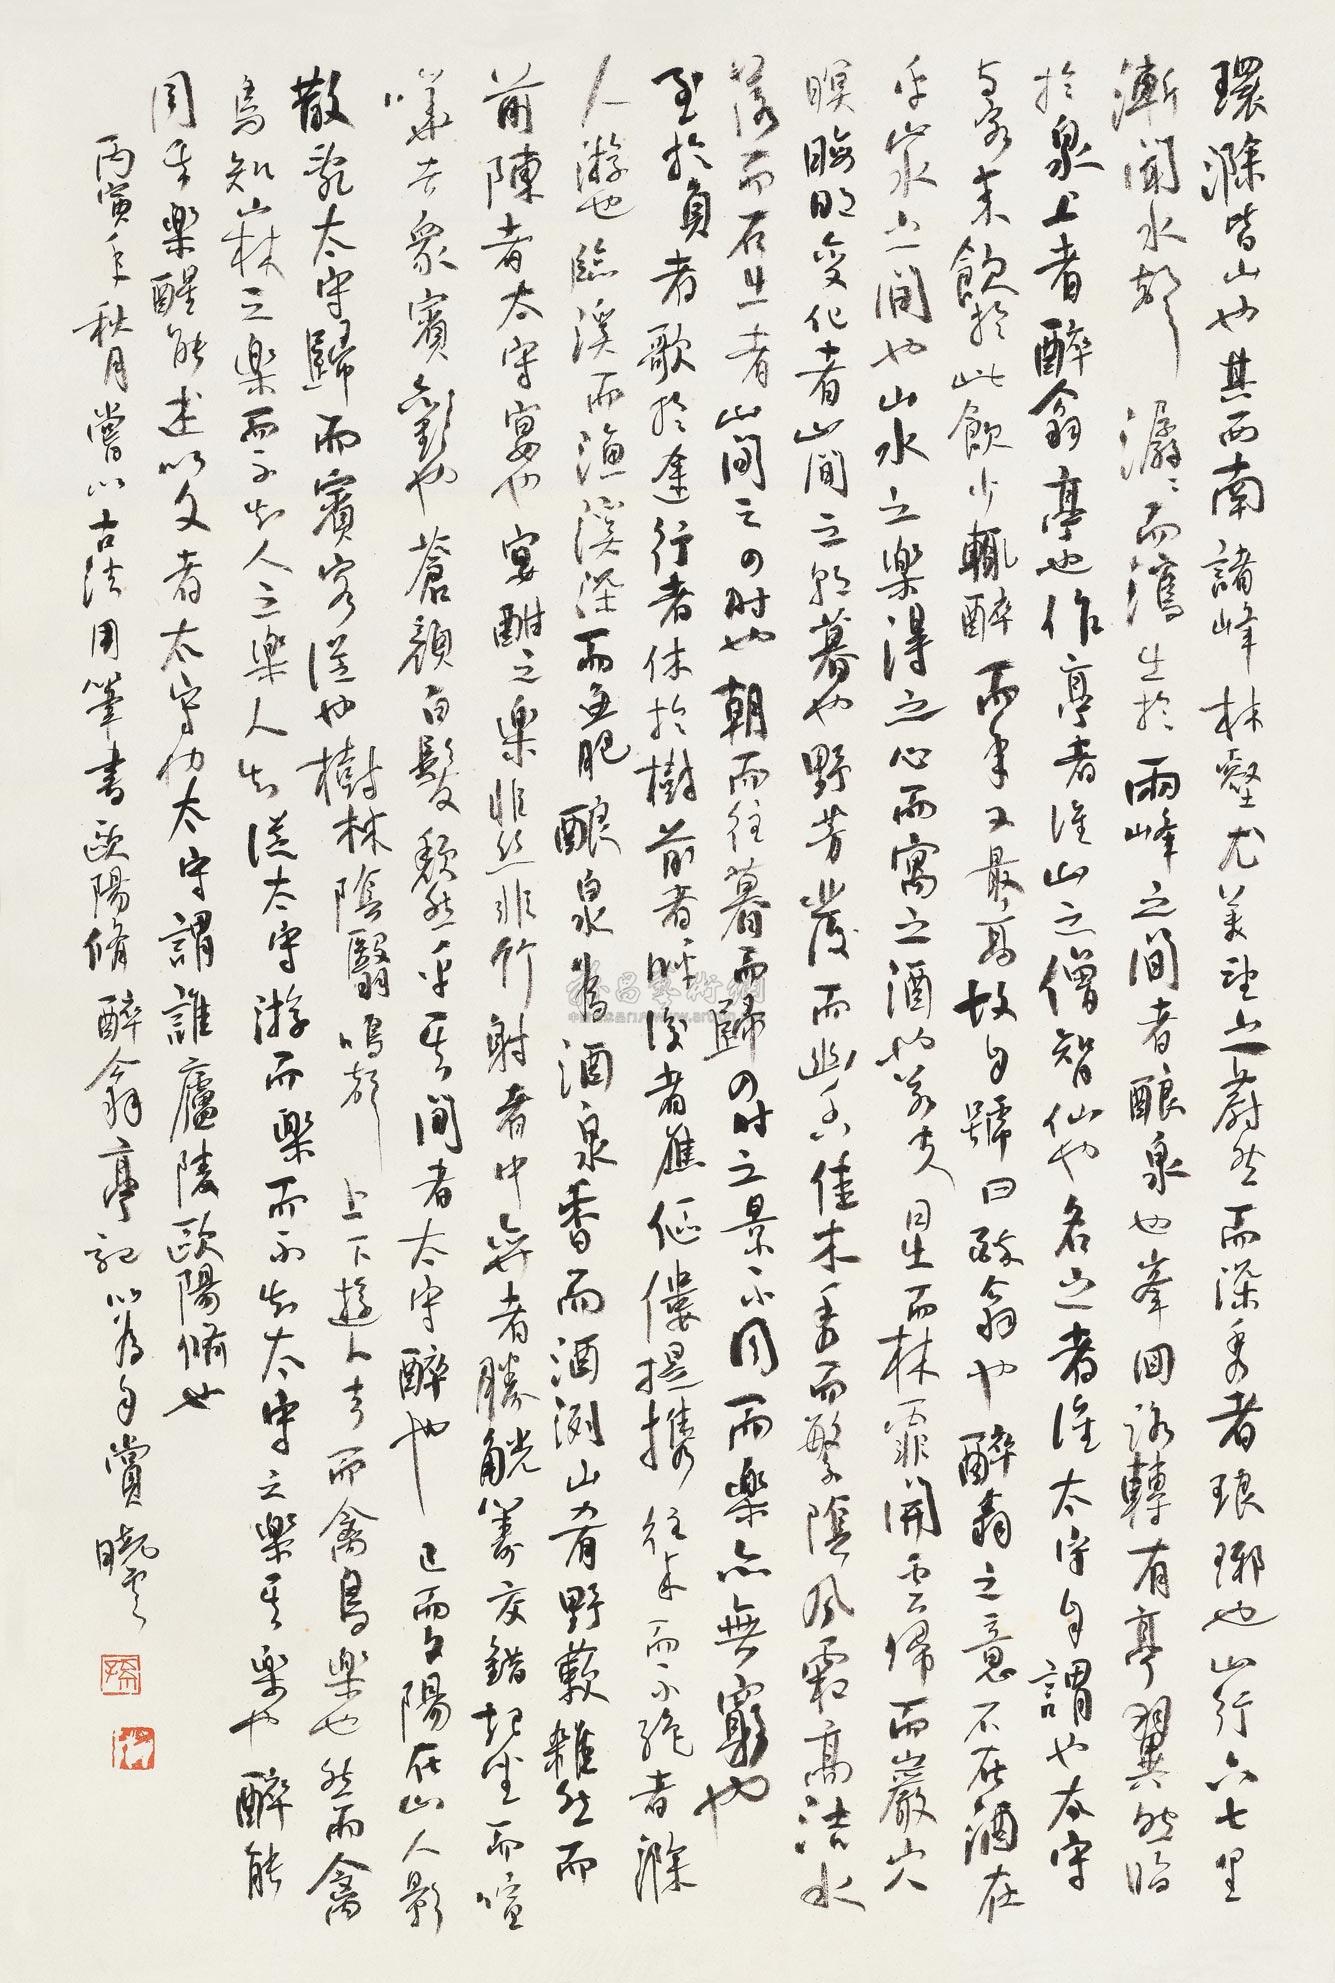 環滁皆山也其西南諸峰林壑尤美望之蔚然而深秀者琅琊也山行六七里
漸聞水聲潺〻而瀉出於兩峰之間者釀泉也峯回路轉有亭翼然臨
於泉上者醉翁亭也作亭者誰山之僧智仙也名之者誰太守自謂也太守
與客來飲於此飲少輒醉而年又最高故自號曰醉翁也醉翁之意不在酒在
乎山水之間也山水之樂得之心而寓之酒也若夫日出而林霏開雲歸而巖穴
暝晦明變化者山間之朝暮也野芳發而幽香佳木秀而繁陰風霜高潔水
落而石出者山間之四時也朝而往暮而歸四時之景不同而樂亦無窮也
至於負者歌於途行者休於樹前者呼後者應傴僂提攜往來而不絕者滁
人游也臨溪而漁溪深而魚肥釀泉為酒泉香而酒洌山肴野蔌雜然而
前陳者太守宴也宴酣之樂非絲非竹射者中弈者勝觥籌交錯起坐而喧
嘩者眾賓歡也蒼顏白髮頹然乎其間者太守醉也已而夕陽在山人影
散亂太守歸而賓客從也樹林陰翳鳴聲上下遊人去而禽鳥樂也然而禽
鳥知山林之樂而不知人之樂人知從太守游而樂而不知太守之樂其樂也醉能
同其樂醒能述以文者太守也太守謂誰廬陵歐陽脩也
丙寅年秋月嘗以古法用筆書歐陽脩醉翁亭記以為自賞 曉雲